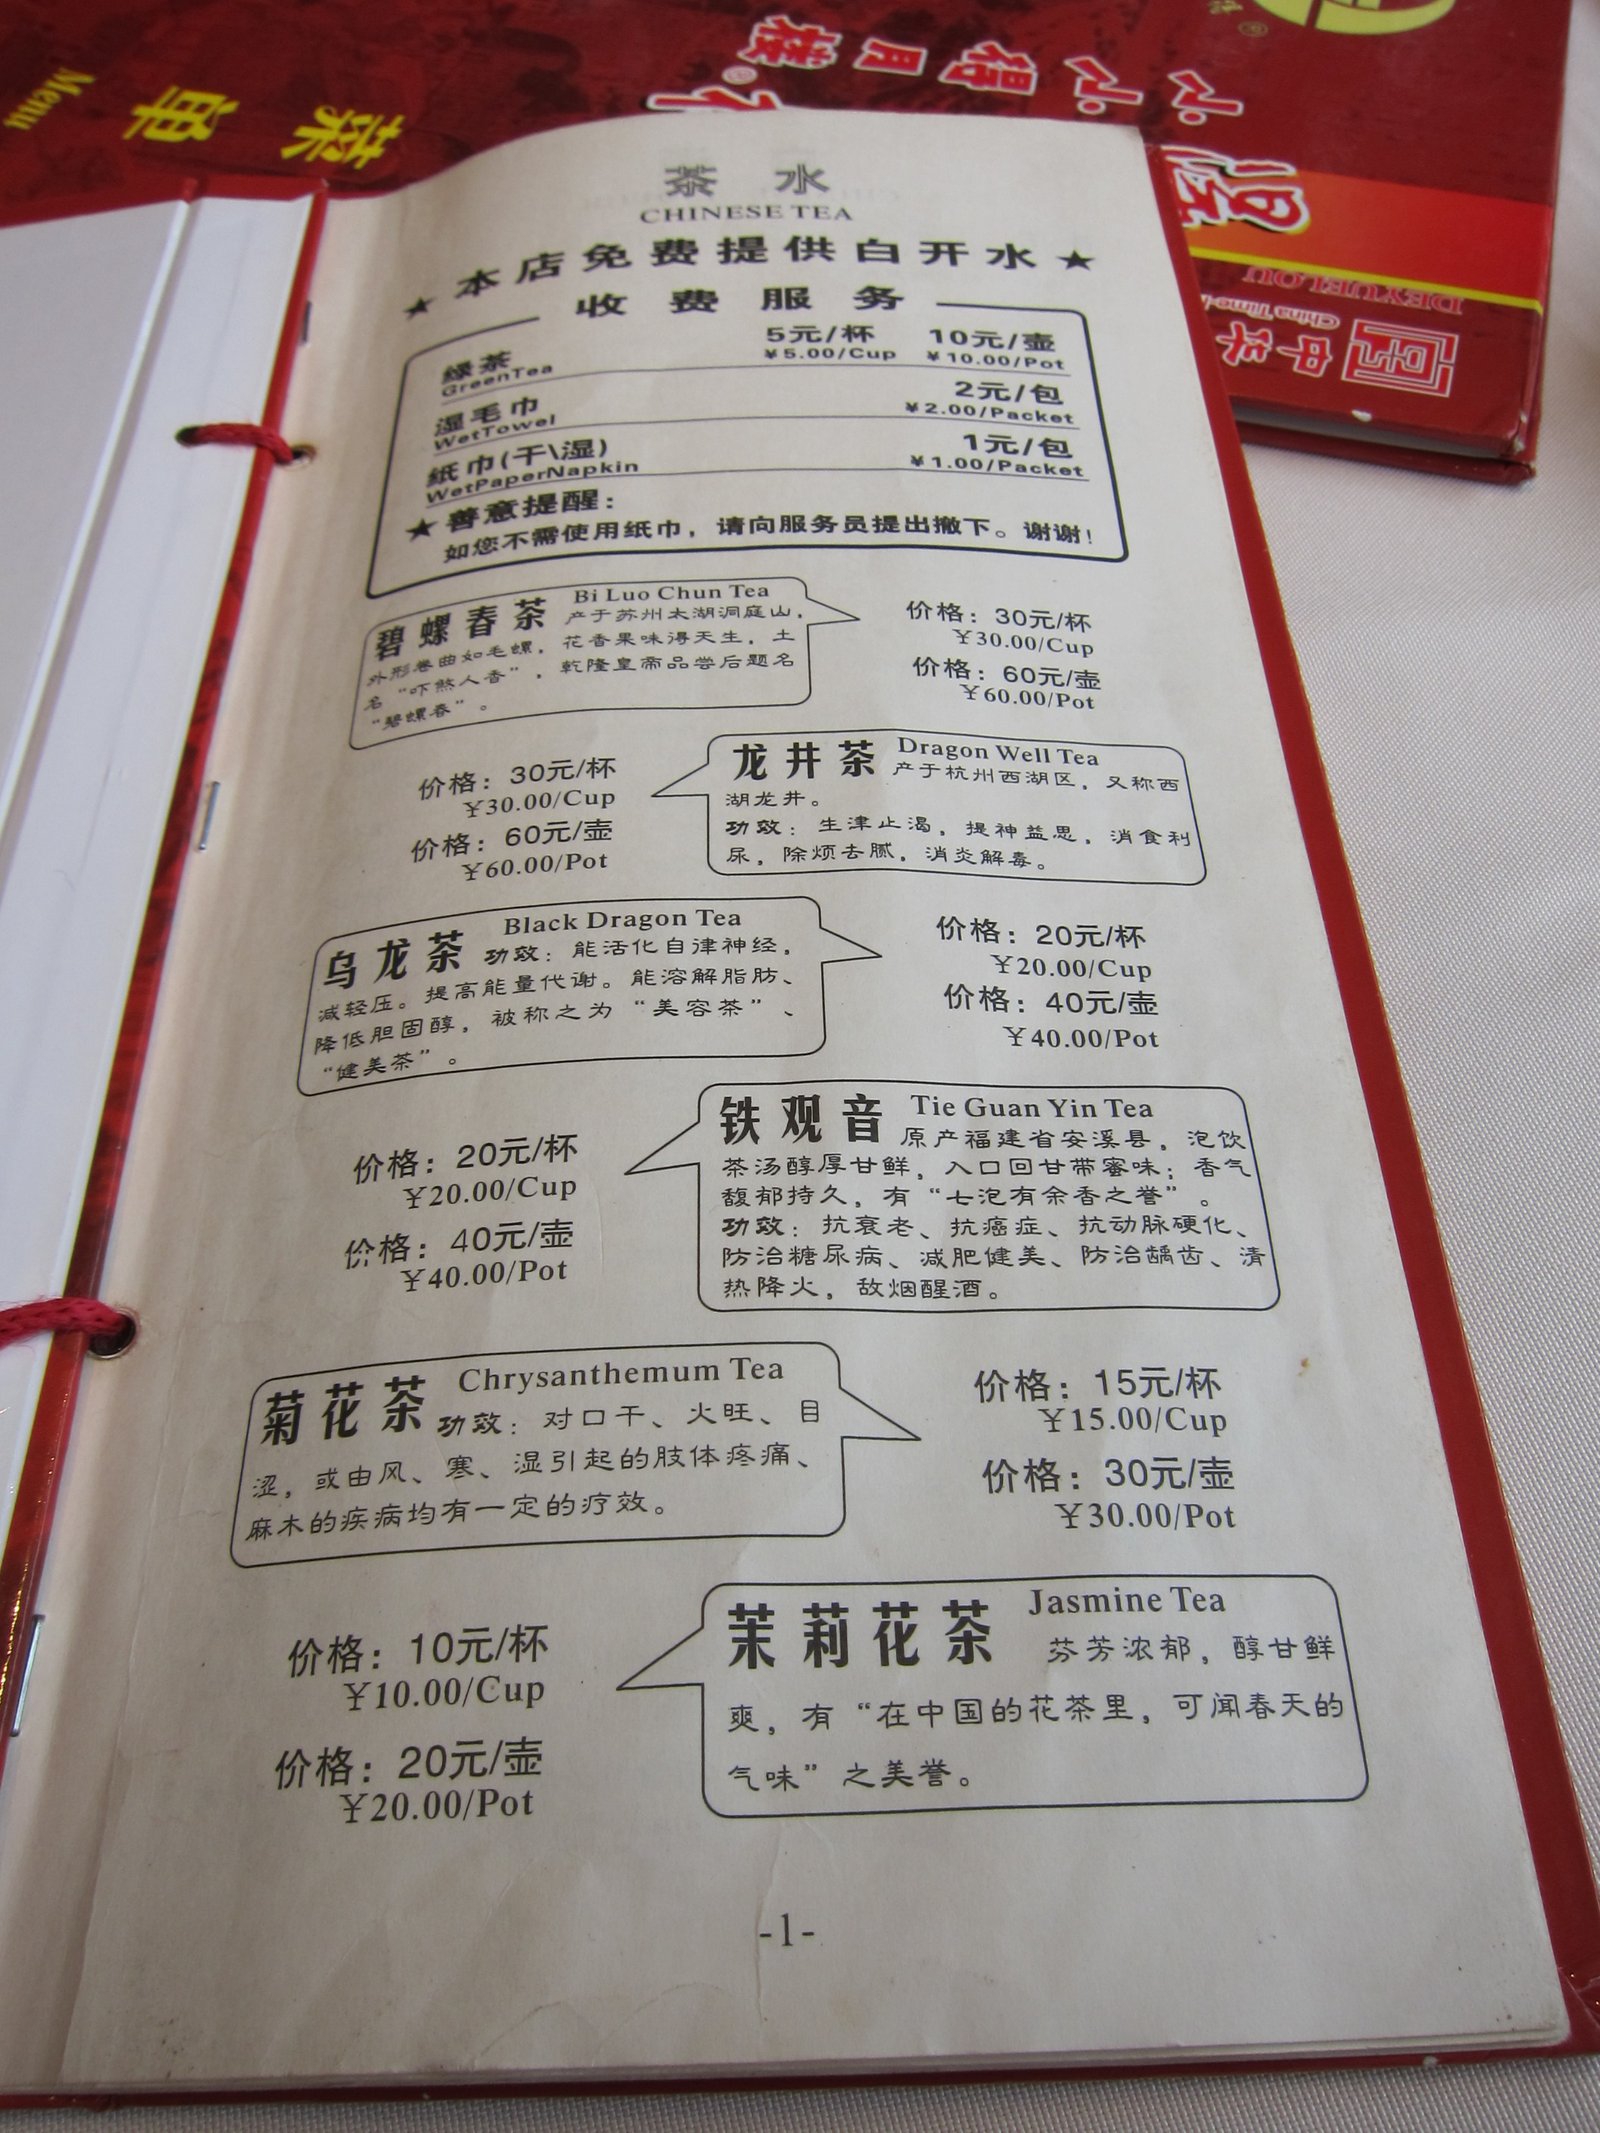 菜单
Menu
小小得月楼
DEYUELOU
茶 水
CHINESE TEA
★本店免费提供白开水★
收费服务
绿茶 5元/杯 10元/壶
GreenTea ¥5.00/Cup ¥10.00/Pot
湿毛巾 2元/包
WetTowel ¥2.00/Packet
纸巾(干\湿) 1元/包
WetPaperNapkin ¥1.00/Packet
★善意提醒：
如您不需使用纸巾，请向服务员提出撤下。谢谢！
碧螺春茶 Bi Luo Chun Tea
产于苏州太湖洞庭山，
外形卷曲如毛螺，花香果味得天生，土
名“吓煞人香”，乾隆皇帝品尝后题名
“碧螺春”。
价格：30元/杯
¥30.00/Cup
价格：60元/壶
¥60.00/Pot
龙井茶 Dragon Well Tea
产于杭州西湖区，又称西
湖龙井。
功效：生津止渴，提神益思，消食利
尿，除烦去腻，消炎解毒。
价格：30元/杯
¥30.00/Cup
价格：60元/壶
¥60.00/Pot
乌龙茶 Black Dragon Tea
功效：能活化自律神经，
减轻压。提高能量代谢。能溶解脂肪、
降低胆固醇，被称之为“美容茶”、
“健美茶”。
价格：20元/杯
¥20.00/Cup
价格：40元/壶
¥40.00/Pot
铁观音 Tie Guan Yin Tea
原产福建省安溪县，泡饮
茶汤醇厚甘鲜，入口回甘带蜜味；香气
馥郁持久，有“七泡有余香之誉”。
功效：抗衰老、抗癌症、抗动脉硬化、
防治糖尿病、减肥健美、防治龋齿、清
热降火，敌烟醒酒。
价格：20元/杯
¥20.00/Cup
价格：40元/壶
¥40.00/Pot
菊花茶 Chrysanthemum Tea
功效：对口干、火旺、目
涩，或由风、寒、湿引起的肢体疼痛、
麻木的疾病均有一定的疗效。
价格：15元/杯
¥15.00/Cup
价格：30元/壶
¥30.00/Pot
茉莉花茶 Jasmine Tea
芬芳浓郁，醇甘鲜
爽，有“在中国的花茶里，可闻春天的
气味”之美誉。
价格：10元/杯
¥10.00/Cup
价格：20元/壶
¥20.00/Pot
-1-